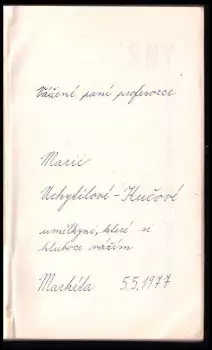 Vážené paní profesorce
Marii
Uchytilové-Kučové
umělkyni, které si
hluboce vážím
Markéta 5.5.1977